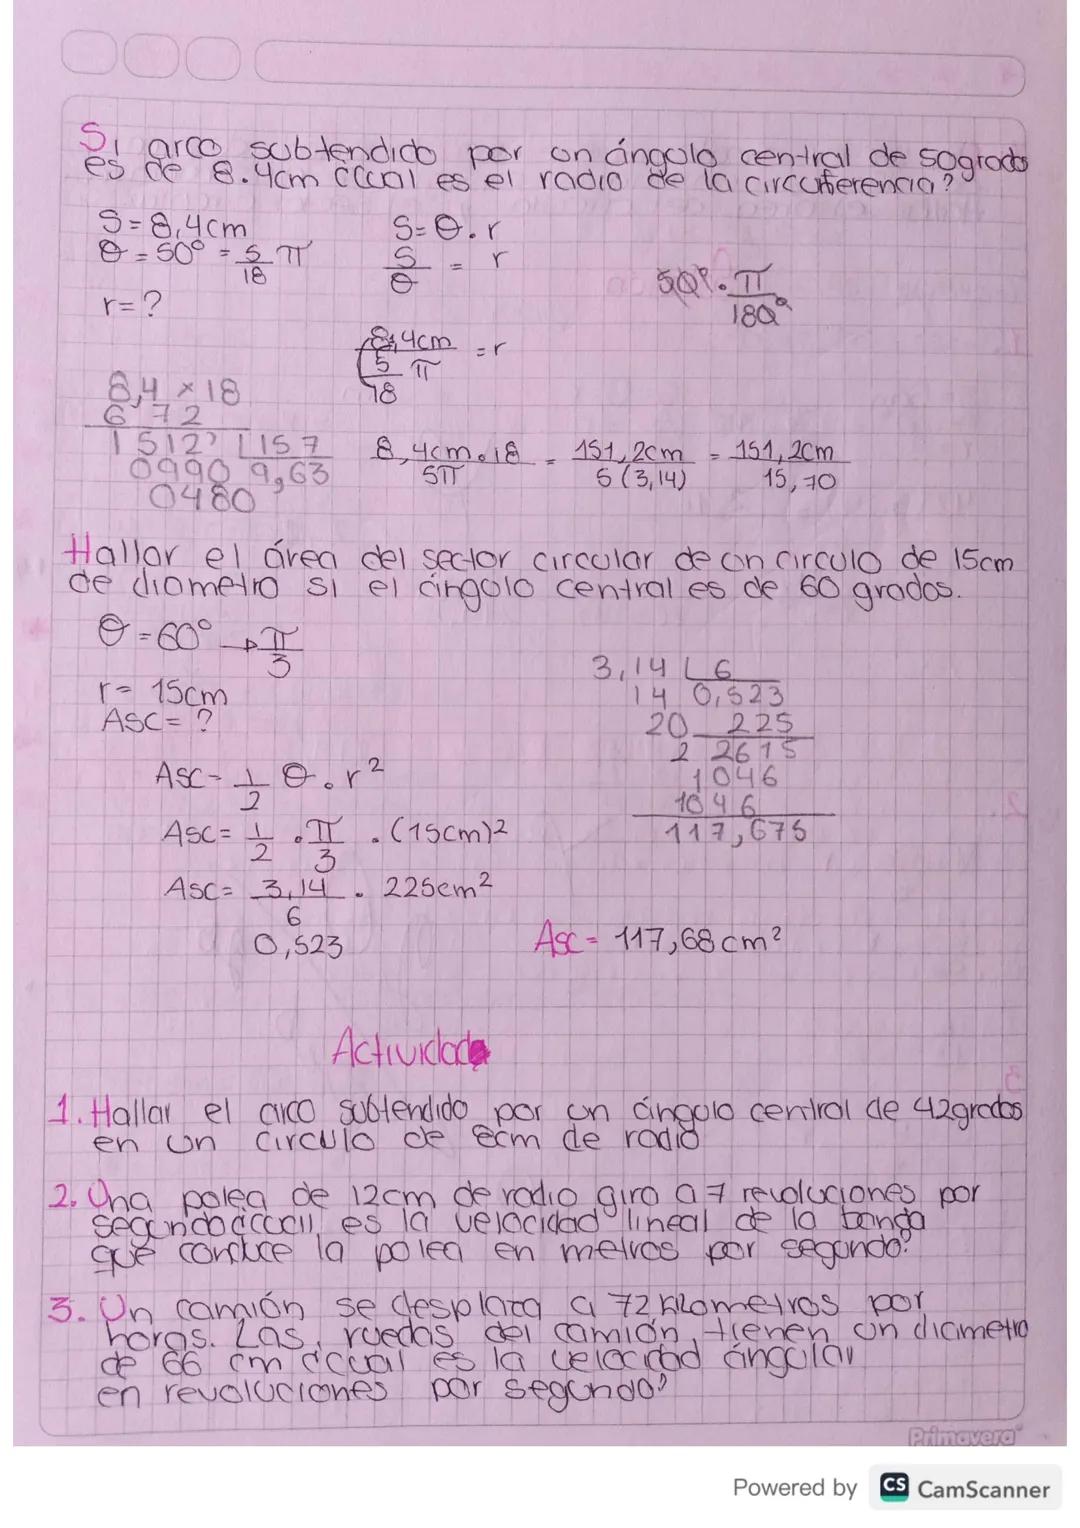 Si arco subtendido por un ángulo central de 50grados
es de 8.4cm ccual es el radio de la circunferencia?
S=8,4cm
θ=50° = 5/18 π
r=?
S=θ.r
S/θ = r
50°. π/180°
8,4cm / (5/18 π) = r
8,4 x 18
6 72
1512 157
0990 9,63
0480
8,4cm.18 / 5π = 151,2cm / 5(3,14) = 151,2cm / 15,70
Hallar el área del sector circular de un circulo de 15cm
de diametro si el ángulo central es de 60 grados.
θ=60° → π/3
r= 15cm
Asc= ?
Asc= 1/2 θ.r²
Asc= 1/2 . π/3 . (15cm)²
Asc= 3,14/6 . 225cm²
0,523
3,14 6
14 0,523
20 225
2 2615
1046
1046
117,675
Asc= 117,68cm²
Actividad
1. Hallar el arco subtendido por un ángulo central de 42grados
en un circulo de 8cm de radio
2. Una polea de 12cm de radio giro a 7 revoluciones por
segundo ccual es la velocidad lineal de la banda
que conduce la polea en metros por segundo?
3. Un camión se desplaza a 72 kilometros por
horas. Las ruedas del camión tienen un diametro
de 66 cm ccual es la velocidad ángular
en revoluciones por segundo?
Primavera
Powered by CS CamScanner